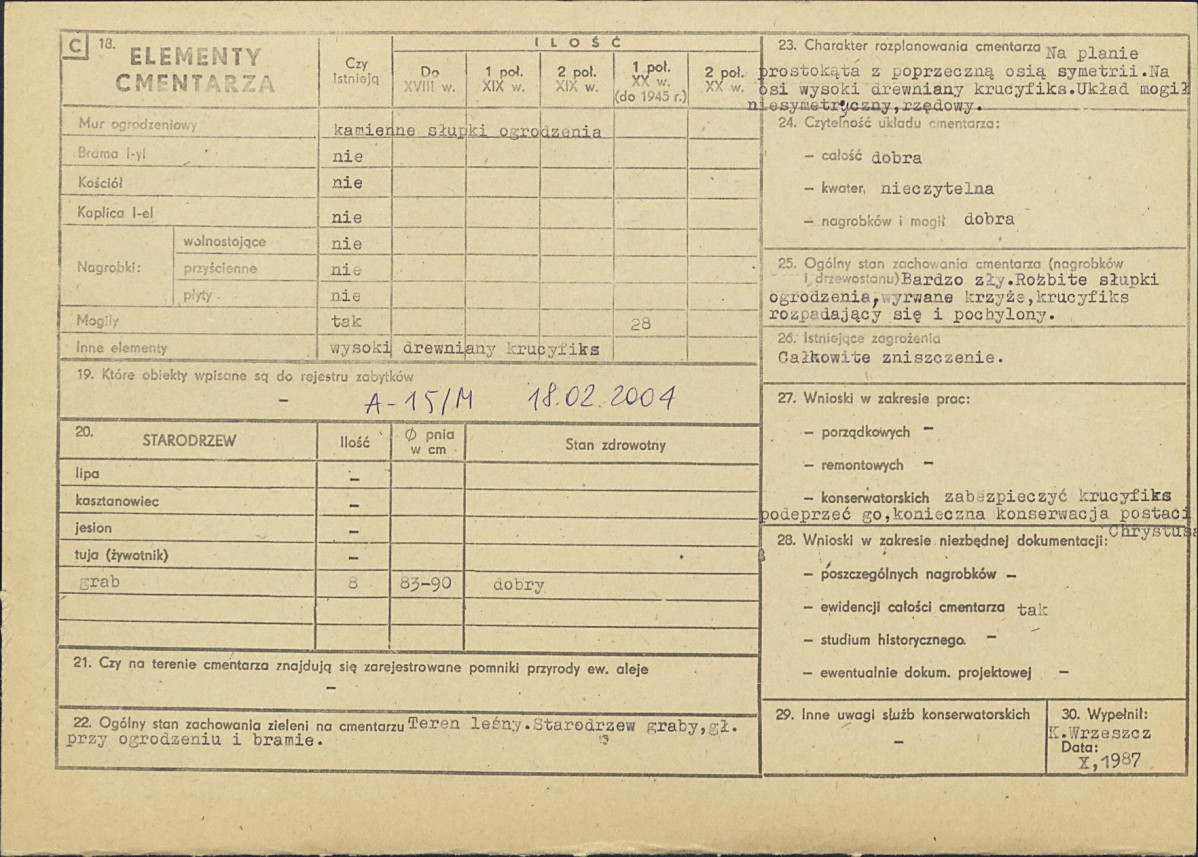 C 18. ELEMENTY CMENTARZA
Czy istnieją
I L O Ś Ć
Do XVIII w.
1 poł. XIX w.
2 poł. XIX w.
1 poł. XX w. (do 1945 r.)
2 poł. XX w.
Mur ogrodzeniowy kamienne słupki ogrodzenia
Brama I-yl nie
Kościół nie
Kaplica I-el nie
Nagrobki:
wolnostojące nie
przyścienne nie
płyty nie
Mogiły tak 28
Inne elementy wysoki drewniany krucyfiks
19. Które obiekty wpisane są do rejestru zabytków
– A-15/M 18.02.2004
20. STARODRZEW Ilość Ø pnia w cm Stan zdrowotny
lipa –
kasztanowiec –
jesion –
tuja (żywotnik) –
grab 8 83-90 dobry
21. Czy na terenie cmentarza znajdują się zarejestrowane pomniki przyrody ew. aleje
–
22. Ogólny stan zachowania zieleni na cmentarzu Teren leśny.Starodrzew graby,gł.
przy ogrodzeniu i bramie.
23. Charakter rozplanowania cmentarza Na planie
prostokąta z poprzeczną osią symetrii.Na
osi wysoki drewniany krucyfiks.Układ mogił
niesymetryczny,rzędowy.
24. Czytelność układu cmentarza:
– całość dobra
– kwater, nieczytelna
– nagrobków i mogił dobra
25. Ogólny stan zachowania cmentarza (nagrobków
i drzewostanu) Bardzo zły.Rozbite słupki
ogrodzenia,wyrwane krzyże,krucyfiks
rozpadający się i pochylony.
26. Istniejące zagrożenia
Całkowite zniszczenie.
27. Wnioski w zakresie prac:
– porządkowych –
– remontowych –
– konserwatorskich zabezpieczyć krucyfiks
podeprzeć go,konieczna konserwacja postaci
Chrystusa
28. Wnioski w zakresie niezbędnej dokumentacji:
– poszczególnych nagrobków –
– ewidencji całości cmentarza tak
– studium historycznego. –
– ewentualnie dokum. projektowej –
29. Inne uwagi służb konserwatorskich
–
30. Wypełnił:
K.Wrzeszcz
Data:
X,1987